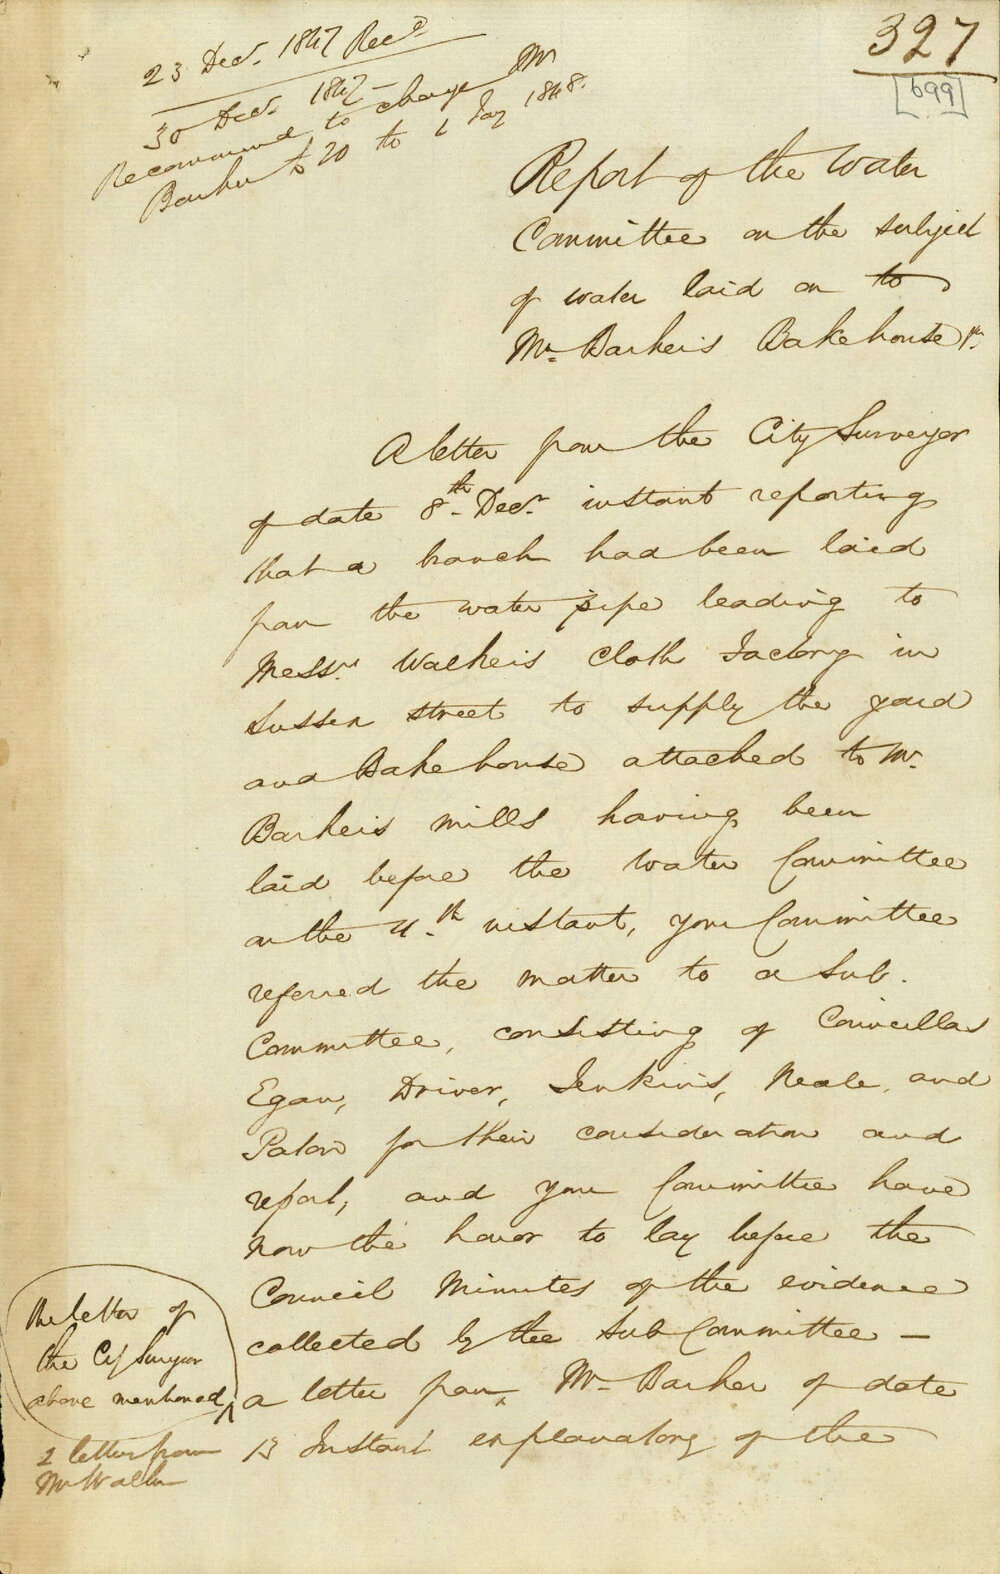 23 Decr. 1847 Recd
30 Decr. 1847 -
Recommend to charge Mr
Barker £20 to 1 Jay 1848.
327
[699]
Report of the Water
Committee on the subject
of water laid on to
Mr Barker's Bakehouse
A letter from the City Surveyor
of date 8th Decr. instant reporting
that a branch had been laid
from the water pipe leading to
Messrs. Walker's Cloth Factory in
Sussex street to supply the yard
and Bakehouse attached to Mr.
Barker's mills having been
laid before the Water Committee
on the 11th instant, your Committee
referred the matter to a Sub.
Committee, consisting of Councillors
Egan, Driver, Jenkins, Neale, and
Paton for their consideration and
report, and your Committee have
now the honor to lay before the
Council Minutes of the evidence
collected by the Sub Committee -
The letter of
the City Surveyor
above mentioned,
a letter from Mr Barker of date
2 letters from
Mr Walker
13 Instant explanatory of the